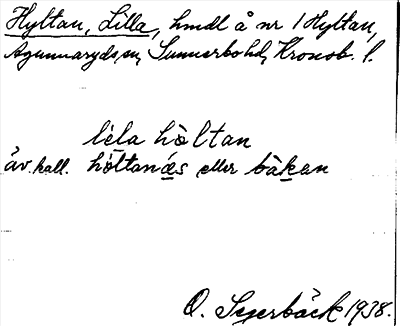 Hyltan, Lilla, hmdl å nr 1 Hyltan,
Agunnaryds sn, Sunnerbo hd, Kronob. l.
lèla hòltan
äv. kall. hòltanäs eller bàkan
O. Segerbäck 1938.